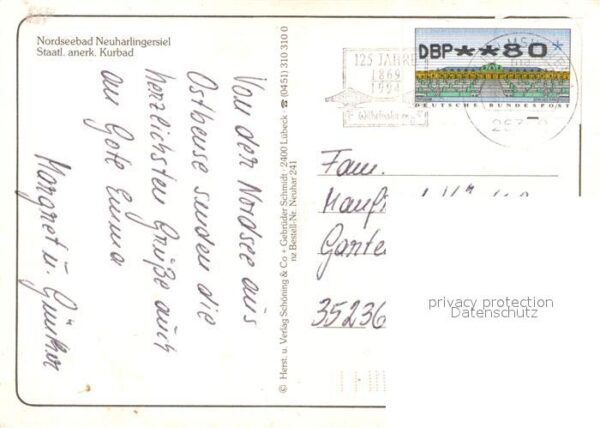 Nordseebad Neuharlingersiel
Staatl. anerk. Kurbad
Von der Nordsee aus
Ostbense senden die
herzlichsten Grüße auch
an Gote Emma
Margret u. Günther
© Herst. u. Verlag Schöning & Co + Gebrüder Schmidt · 2400 Lübeck · ☎ (0451) 310 310 0
nz Bestell-Nr. Neuhar 241
125 JAHRE
1869
1994
Wilhelmshaven
DBP**80*
DEUTSCHE BUNDESPOST
Fam.
35236
privacy protection
Datenschutz